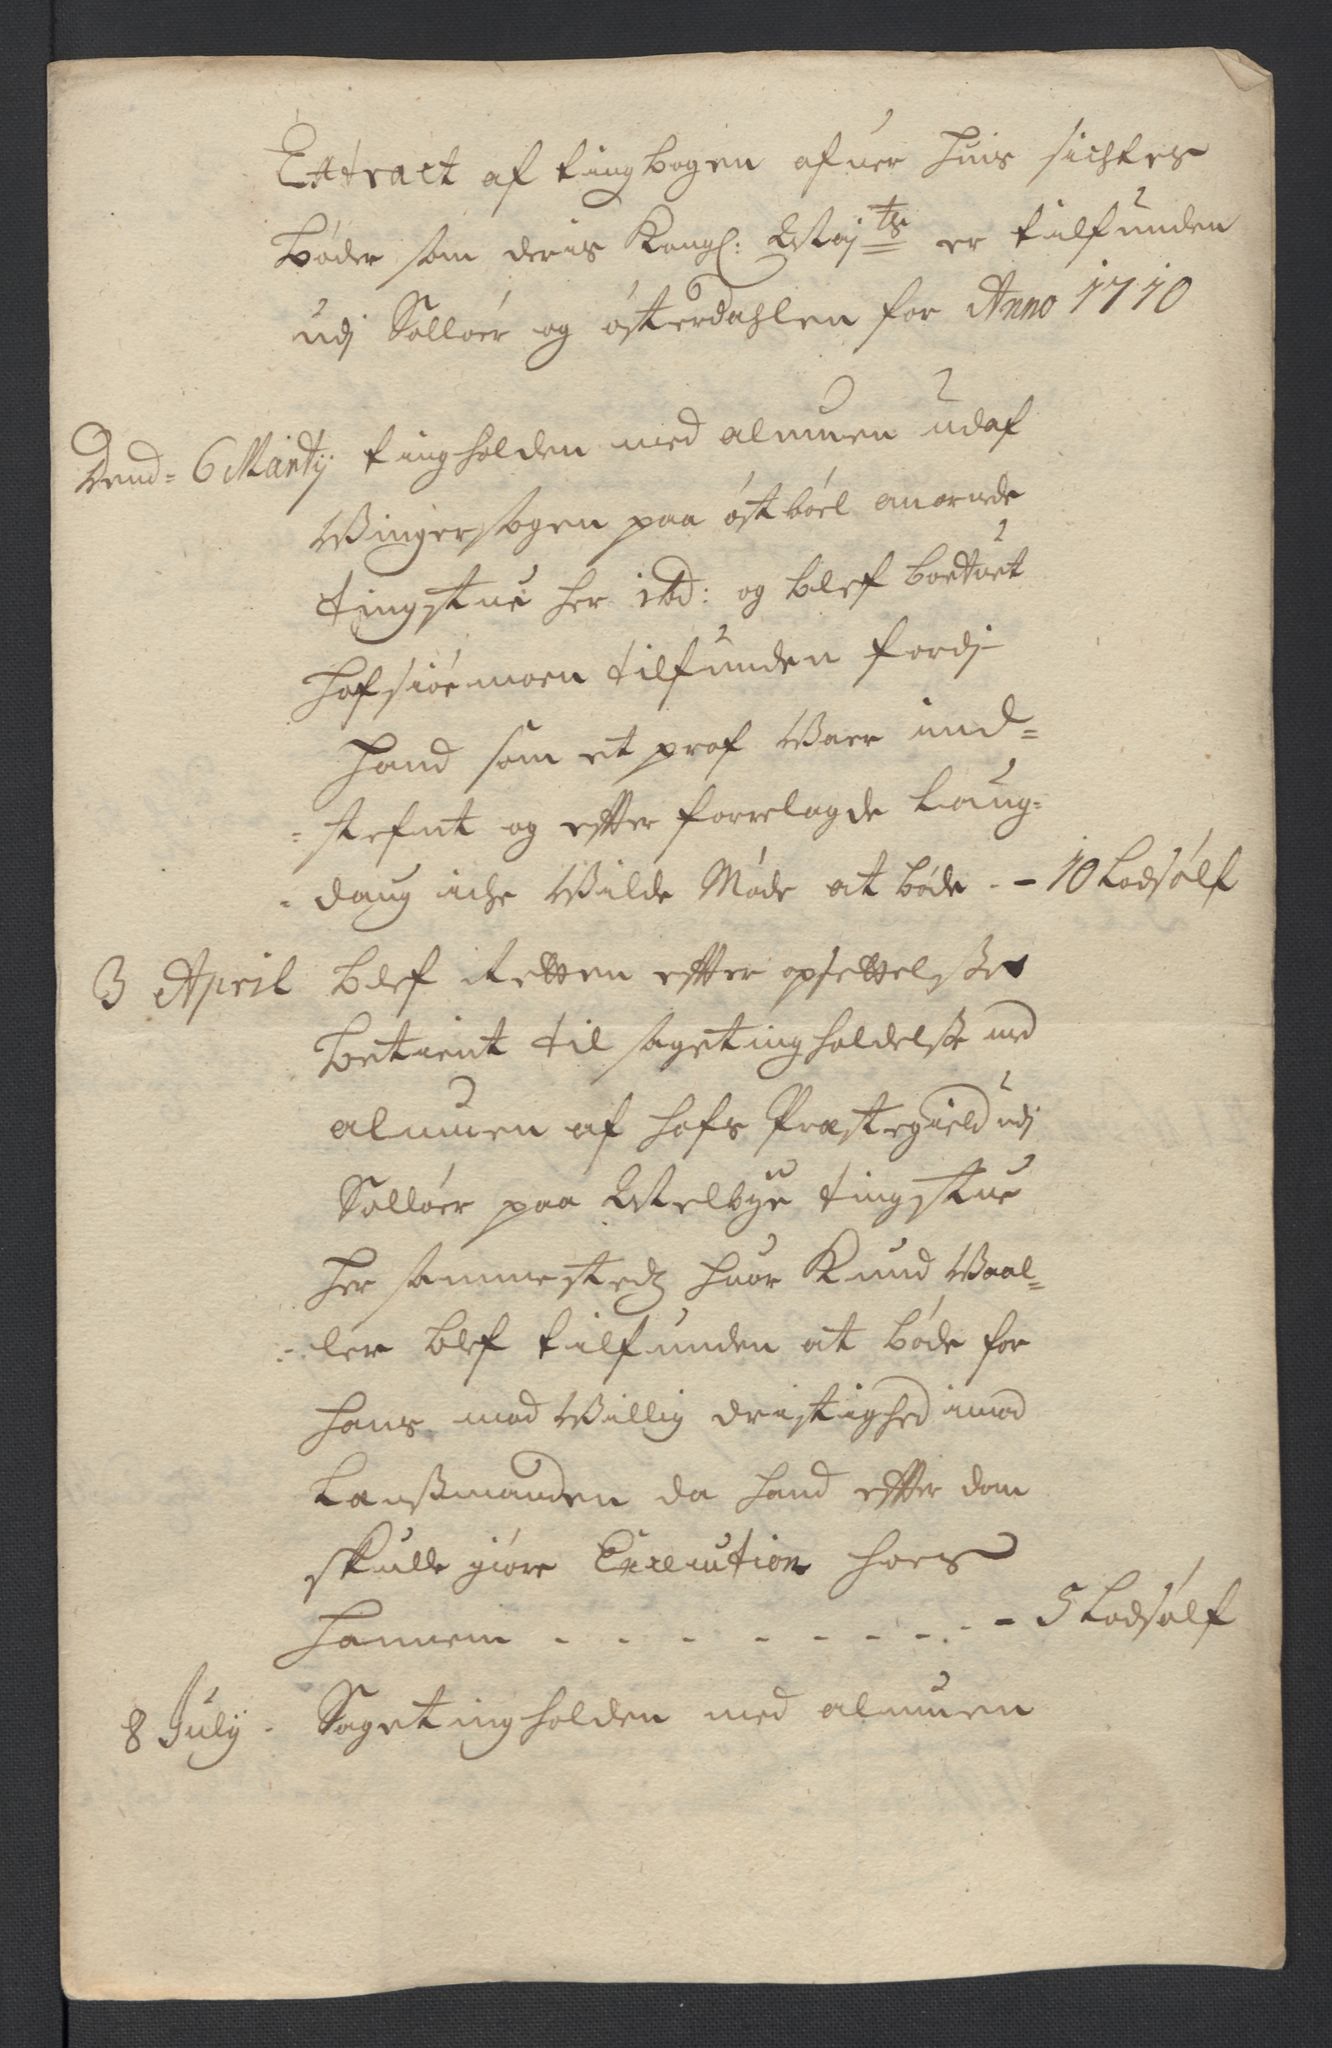 Extract af tingbogen ofuer huis sichtes
bøder som deris Kongl: Maj^ts er tilfunden
udj Solløer og østerdahlen for Anno 1710
Dend= 6 Martij tingholden med almuen udaf
Wingersogen paa østbøel anordnede
tingstue her ibd: og blef
hofsiøemoen tilfunden fordj
hand som et prof Waer ind=
=stefnt og effter forrelagde Laug=
=daug iche Wilde Møde at bøde - - 10 Lodsølf
3 April blef Retten effter opsettelsse
betient til sagetingholdelsse med
almuen af hofs Præstegield udj
Solløer paa Melbye tingstue
her sammestedz huor Knud Waal=
=ler blef tilfunden at bøde for
hans modWillig dristighed imod
Lanssmanden da hand effter dom
skulle giøre Execution hoes
hannem - - - - - - - - 5 Lodsølf
8 July - Sagetingholden med almuen